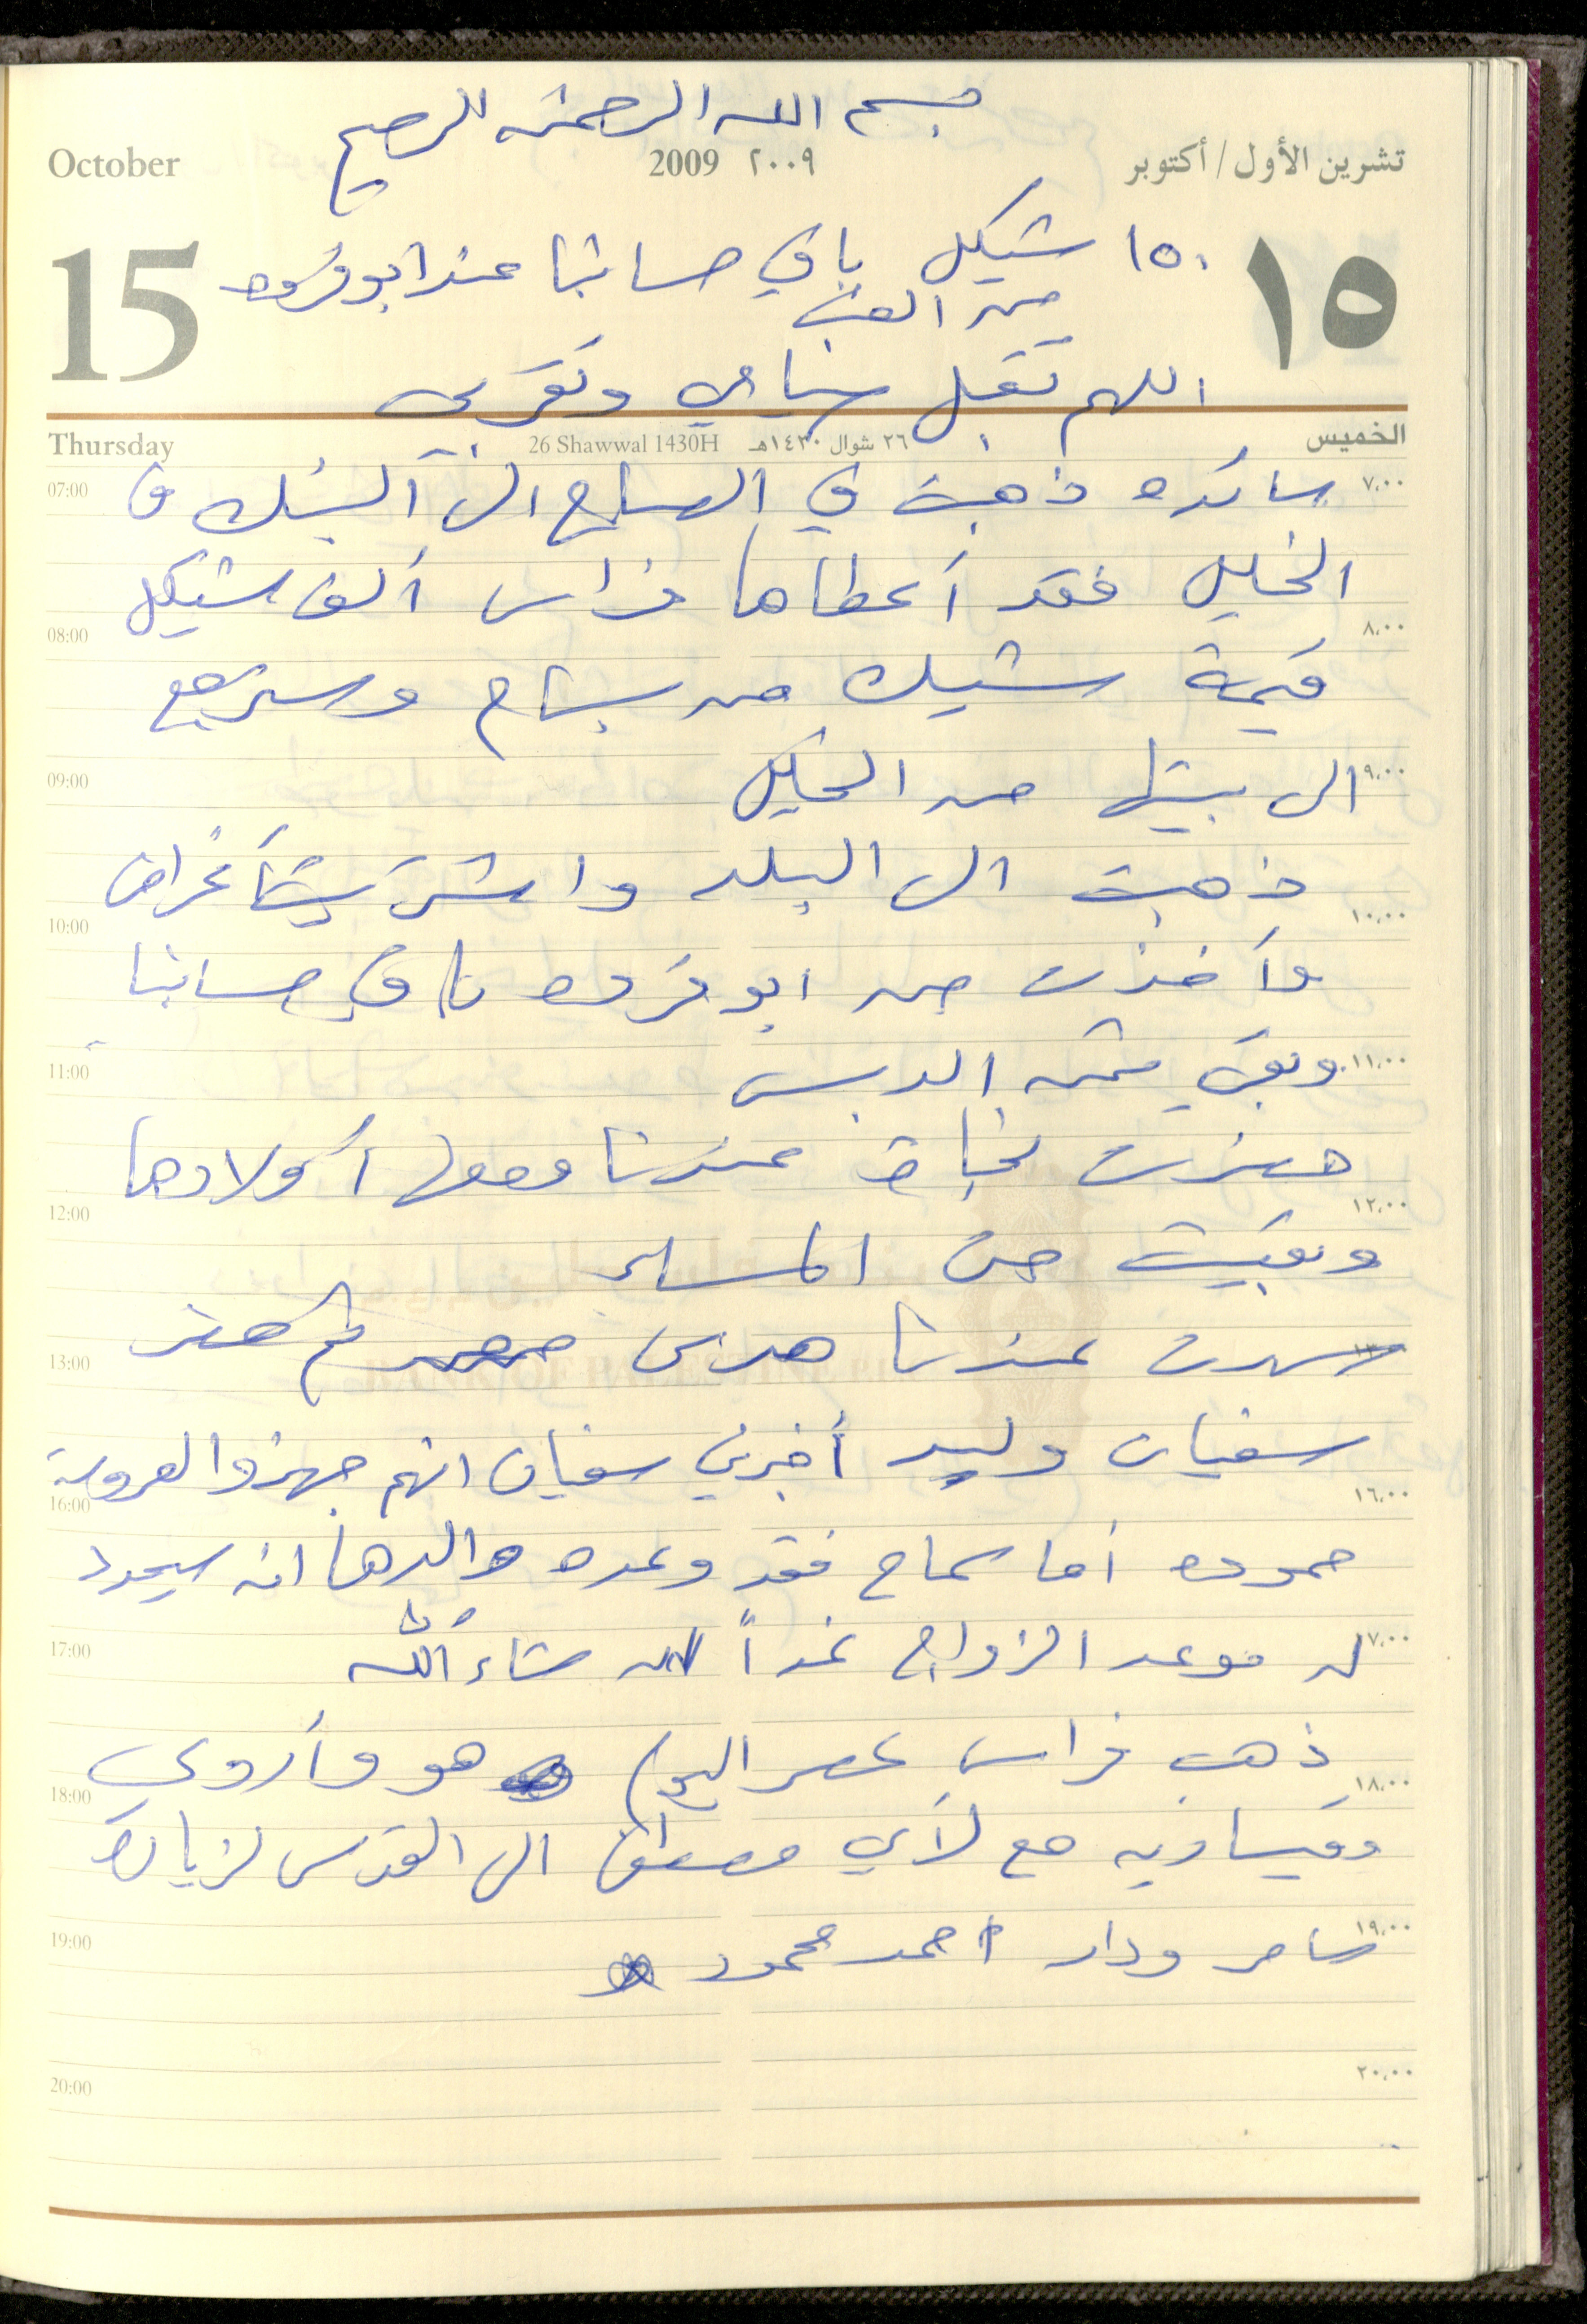 بسم الله الرحمن الرحيم
October 2009 ٢٠٠٩ تشرين الأول / أكتوبر
15 ١٥
١٥٠ شيكل باقي حسابنا عند ابو فروه
من العنب
اللهم تقبل صيامي وتقربي
Thursday 26 Shawwal 1430H ٢٦ شوال ١٤٣٠هـ الخميس
07:00 ٧,٠٠
سائده ذهبت في الصباح الى البنك في
الخليل فقد أعطاها فراس ألف شيكل
08:00 ٨,٠٠
قيمة شيك من بسام وسترجع
الى بيتها من الخليل
09:00 ٩,٠٠
ذهبت الى البلد واشتريت أغراض
10:00 ١٠,٠٠
وأخذت من ابو فروه باقي حسابنا
وبقي ثمن الدبس
11:00 ١١,٠٠
حضرت نجاة عندنا ومعها أولادها
12:00 ١٢,٠٠
وبقيت حتى المساء
سهرت عندنا هدى ثم حضر
13:00
سفيان وليد أخبرني سفيان انهم جهزوا لعروسة
16:00 ١٦,٠٠
حموده أما سماح فقد وعده والدها انه سيحدد
له موعد الزواج غداً ان شاء الله
17:00 ١٧,٠٠
ذهب فراس عصر اليوم هو وأروى
18:00 ١٨,٠٠
وميساويه مع لأي مصطفى الى القدس لزيارة
سامر ودار احمد محمود
19:00 ١٩,٠٠
20:00 ٢٠,٠٠